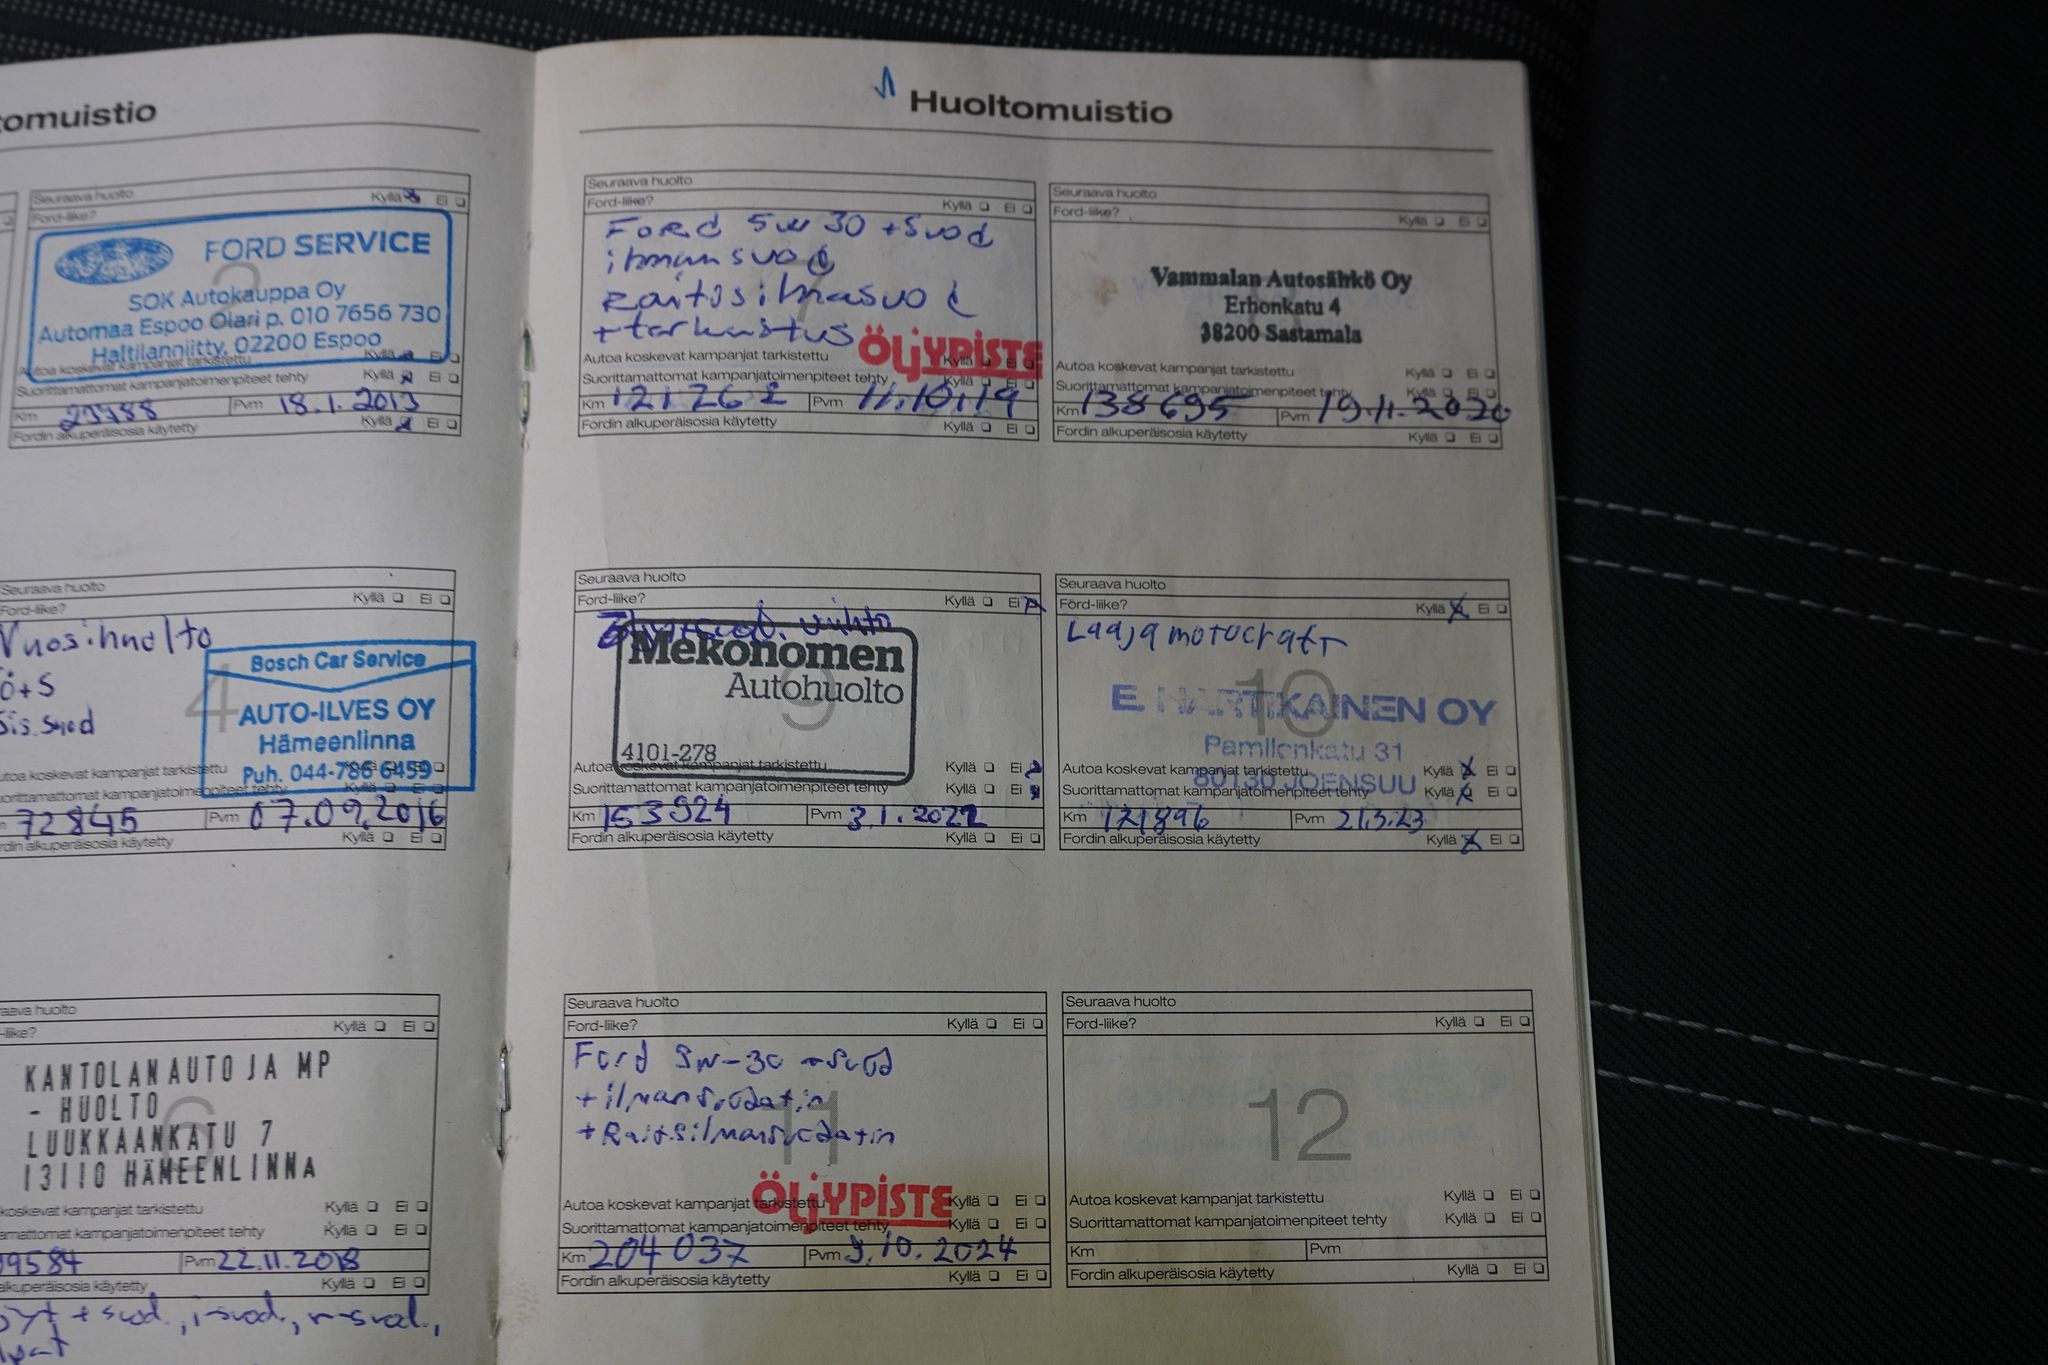 tomuistio
Seuraava huolto
Ford-liike? Kyllä Ei
FORD SERVICE
SOK Autokauppa Oy
Automaa Espoo Olari p. 010 7656 730
Haltilanniitty, 02200 Espoo
Autoa koskevat kampanjat tarkistettu Kyllä Ei
Suorittamattomat kampanjatoimenpiteet tehty Kyllä Ei
Km 23788 Pvm 18.1.2013
Fordin alkuperäisosia käytetty Kyllä Ei
Seuraava huolto
Ford-liike? Kyllä Ei
Vuosihuolto
Ö+S
Sis.suod
4
Bosch Car Service
AUTO-ILVES OY
Hämeenlinna
Puh. 044-786 6459
utoa koskevat kampanjat tarkistettu
orittamattomat kampanjatoimenpiteet tehty Kyllä Ei
72845 Pvm 07.09.2016
rdin alkuperäisosia käytetty Kyllä Ei
raava huolto
-liike? Kyllä Ei
KANTOLAN AUTO JA MP
- HUOLTO
6
LUUKKAANKATU 7
13110 HÄMEENLINNA
koskevat kampanjat tarkistettu Kyllä Ei
amattomat kampanjatoimenpiteet tehty Kyllä Ei
99584 Pvm 22.11.2018
alkuperäisosia käytetty Kyllä Ei
öyt + suod., i-suod., r-suod.,
Huoltomuistio
Seuraava huolto
Ford-liike? Kyllä Ei
Ford 5w30 + Suod
ilmansuod
Raitisilmasuod
+ tarkastus
ÖLJYPISTE
Autoa koskevat kampanjat tarkistettu Kyllä Ei
Suorittamattomat kampanjatoimenpiteet tehty Kyllä Ei
Km 121262 Pvm 11.10.19
Fordin alkuperäisosia käytetty Kyllä Ei
Seuraava huolto
Ford-liike? Kyllä Ei
Vammalan Autosähkö Oy
Erhonkatu 4
38200 Sastamala
Autoa koskevat kampanjat tarkistettu Kyllä Ei
Suorittamattomat kampanjatoimenpiteet tehty Kyllä Ei
Km 138695 Pvm 19.11.2020
Fordin alkuperäisosia käytetty Kyllä Ei
Seuraava huolto
Ford-liike? Kyllä Ei
vaihto
Mekonomen
Autohuolto
9
4101-278
Autoa koskevat kampanjat tarkistettu Kyllä Ei
Suorittamattomat kampanjatoimenpiteet tehty Kyllä Ei
Km 153924 Pvm 3.1.2022
Fordin alkuperäisosia käytetty Kyllä Ei
Seuraava huolto
Ford-liike? Kyllä Ei
Laaja motocraft
10
E HARTIKAINEN OY
Pamilonkatu 31
80130 JOENSUU
Autoa koskevat kampanjat tarkistettu Kyllä Ei
Suorittamattomat kampanjatoimenpiteet tehty Kyllä Ei
Km 171896 Pvm 21.3.23
Fordin alkuperäisosia käytetty Kyllä Ei
Seuraava huolto
Ford-liike? Kyllä Ei
Ford 5w-30 +suod
+ ilmansuodatin
+ Raitisilmansuodatin
11
ÖLJYPISTE
Autoa koskevat kampanjat tarkistettu Kyllä Ei
Suorittamattomat kampanjatoimenpiteet tehty Kyllä Ei
Km 204 037 Pvm 9.10.2024
Fordin alkuperäisosia käytetty Kyllä Ei
Seuraava huolto
Ford-liike? Kyllä Ei
12
Autoa koskevat kampanjat tarkistettu Kyllä Ei
Suorittamattomat kampanjatoimenpiteet tehty Kyllä Ei
Km Pvm
Fordin alkuperäisosia käytetty Kyllä Ei